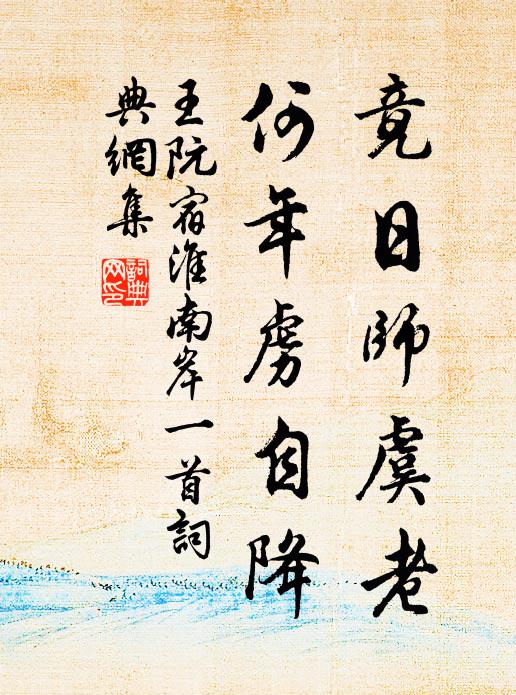 竟日師虞老
何年虜自降
王阮宿淮南岸一首詞
典網集
詞典
網印